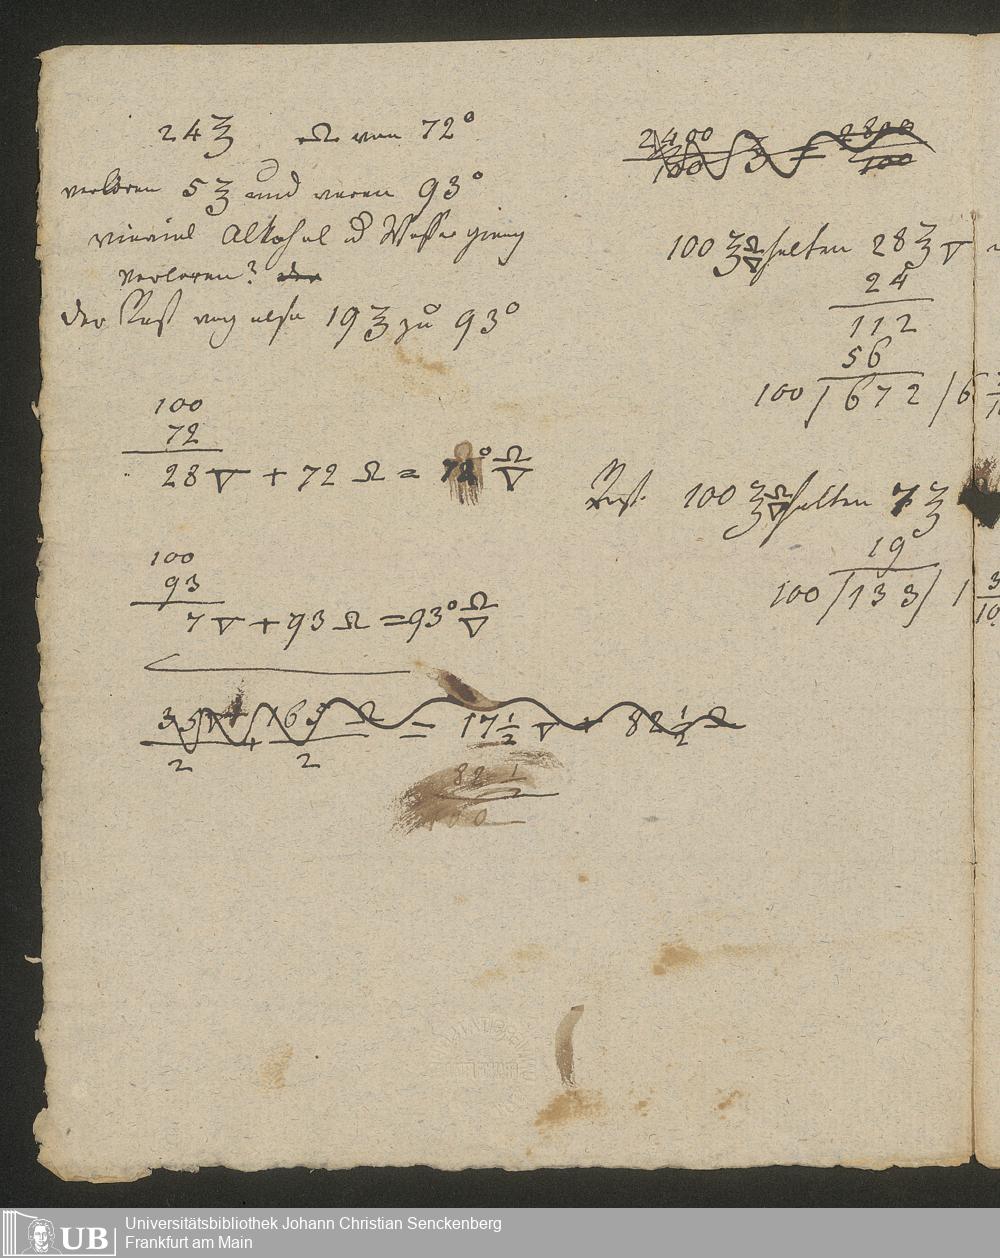 24 ℥ Ω von 72°
verloren 5 ℥ und waren 93°
wieviel Alkohol Wasser gieng
verloren?
der Rest wog also 19 ℥ zu 93°
100
72
28 ▽ + 72 Ω = 72° Ω/▽
100
93
7 ▽ + 93 Ω = 93° Ω/▽
35 ▽ + 165 Ω = 17 1/2 ▽ + 82 1/2 Ω
2 2
82 1/2
100
2400 = 2800
100 100
100 ℥ Ω/▽ halten 28 ℥ ▽
24
112
56
100 / 672 / 6
Rest. 100 ℥ Ω/▽ halten 7 ℥
19
100 / 133 / 1 3
10
Universitätsbibliothek Johann Christian Senckenberg
Frankfurt am Main
UB